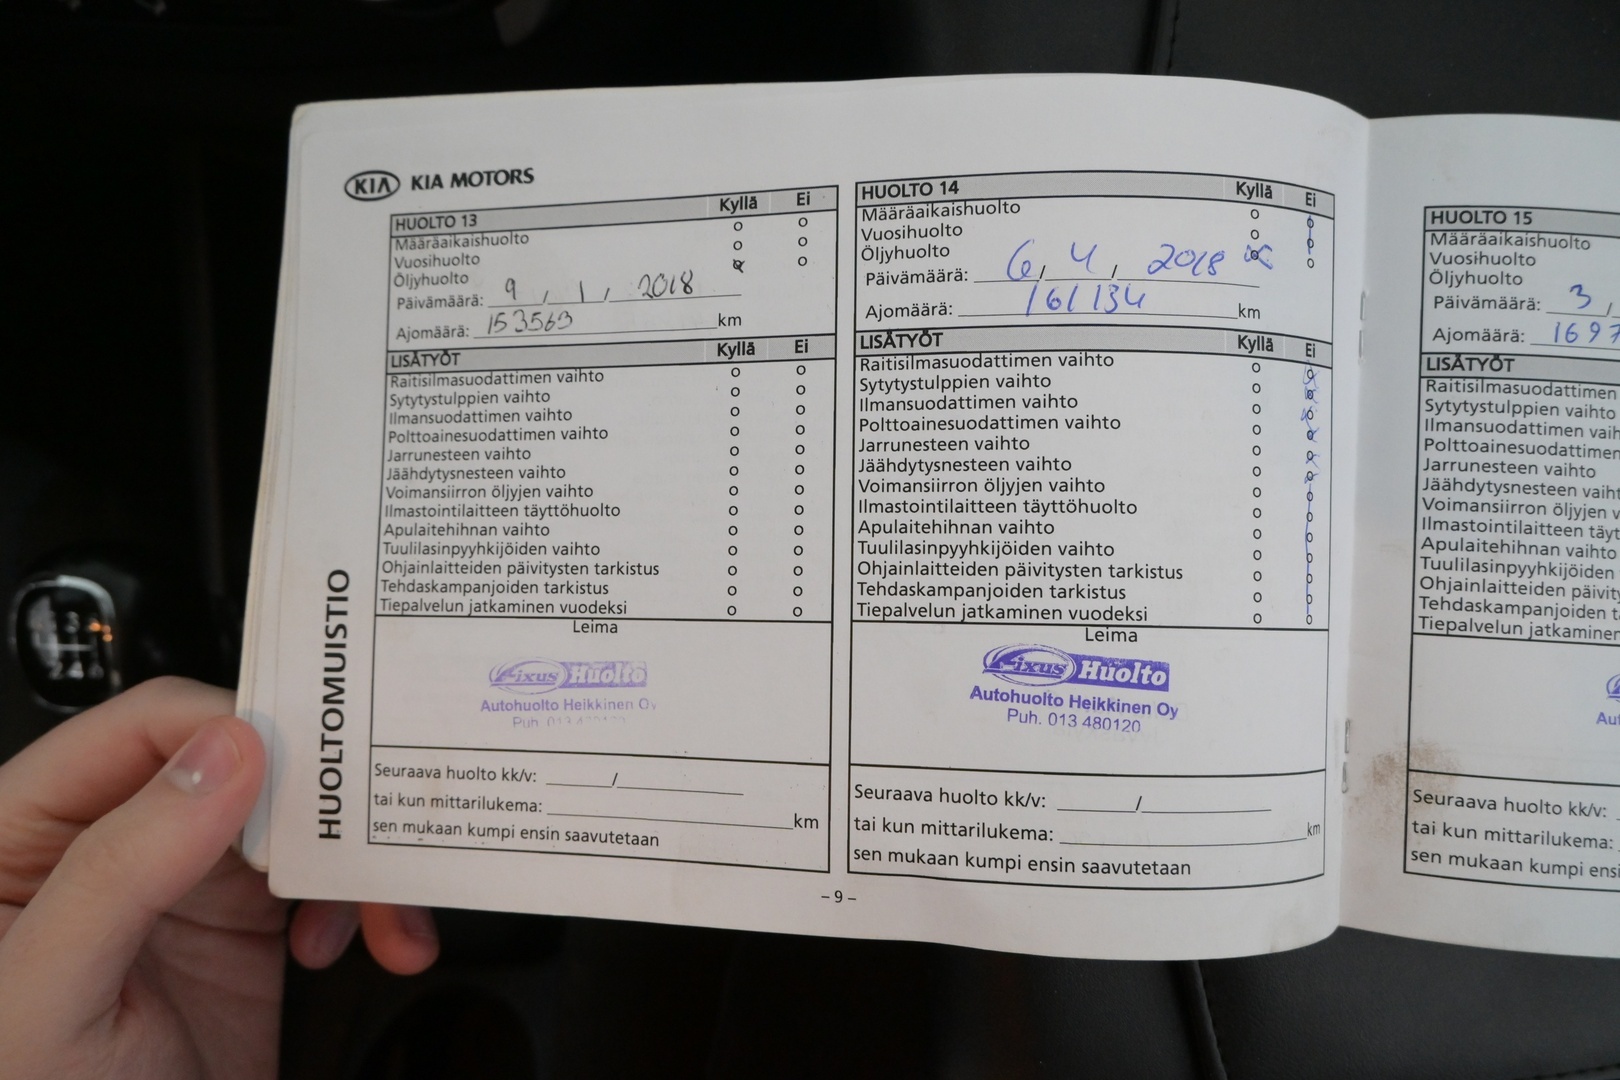 KIA KIA MOTORS
HUOLTOMUISTIO
HUOLTO 13 Kyllä Ei
Määräaikaishuolto o o
Vuosihuolto o o
Öljyhuolto o o
Päivämäärä: 9 / 1 / 2018
Ajomäärä: 153563 km
LISÄTYÖT Kyllä Ei
Raitisilmasuodattimen vaihto o o
Sytytystulppien vaihto o o
Ilmansuodattimen vaihto o o
Polttoainesuodattimen vaihto o o
Jarrunesteen vaihto o o
Jäähdytysnesteen vaihto o o
Voimansiirron öljyjen vaihto o o
Ilmastointilaitteen täyttöhuolto o o
Apulaitehihnan vaihto o o
Tuulilasinpyyhkijöiden vaihto o o
Ohjainlaitteiden päivitysten tarkistus o o
Tehdaskampanjoiden tarkistus o o
Tiepalvelun jatkaminen vuodeksi o o
Leima
Fixus Huolto
Autohuolto Heikkinen Oy
Puh. 013 480120
Seuraava huolto kk/v: /
tai kun mittarilukema: km
sen mukaan kumpi ensin saavutetaan
HUOLTO 14 Kyllä Ei
Määräaikaishuolto o o
Vuosihuolto o o
Öljyhuolto o o
Päivämäärä: 6 / 4 / 2018
Ajomäärä: 161134 km
LISÄTYÖT Kyllä Ei
Raitisilmasuodattimen vaihto o o
Sytytystulppien vaihto o o
Ilmansuodattimen vaihto o o
Polttoainesuodattimen vaihto o o
Jarrunesteen vaihto o o
Jäähdytysnesteen vaihto o o
Voimansiirron öljyjen vaihto o o
Ilmastointilaitteen täyttöhuolto o o
Apulaitehihnan vaihto o o
Tuulilasinpyyhkijöiden vaihto o o
Ohjainlaitteiden päivitysten tarkistus o o
Tehdaskampanjoiden tarkistus o o
Tiepalvelun jatkaminen vuodeksi o o
Leima
Fixus Huolto
Autohuolto Heikkinen Oy
Puh. 013 480120
Seuraava huolto kk/v: /
tai kun mittarilukema: km
sen mukaan kumpi ensin saavutetaan
– 9 –
HUOLTO 15
Määräaikaishuolto
Vuosihuolto
Öljyhuolto
Päivämäärä: 3 /
Ajomäärä: 1697
LISÄTYÖT
Raitisilmasuodattimen
Sytytystulppien vaihto
Ilmansuodattimen vaih
Polttoainesuodattimen
Jarrunesteen vaihto
Jäähdytysnesteen vaiht
Voimansiirron öljyjen v
Ilmastointilaitteen täyt
Apulaitehihnan vaihto
Tuulilasinpyyhkijöiden
Ohjainlaitteiden päivity
Tehdaskampanjoiden t
Tiepalvelun jatkaminen
Aut
Seuraava huolto kk/v:
tai kun mittarilukema:
sen mukaan kumpi ensi
3
2 4 6